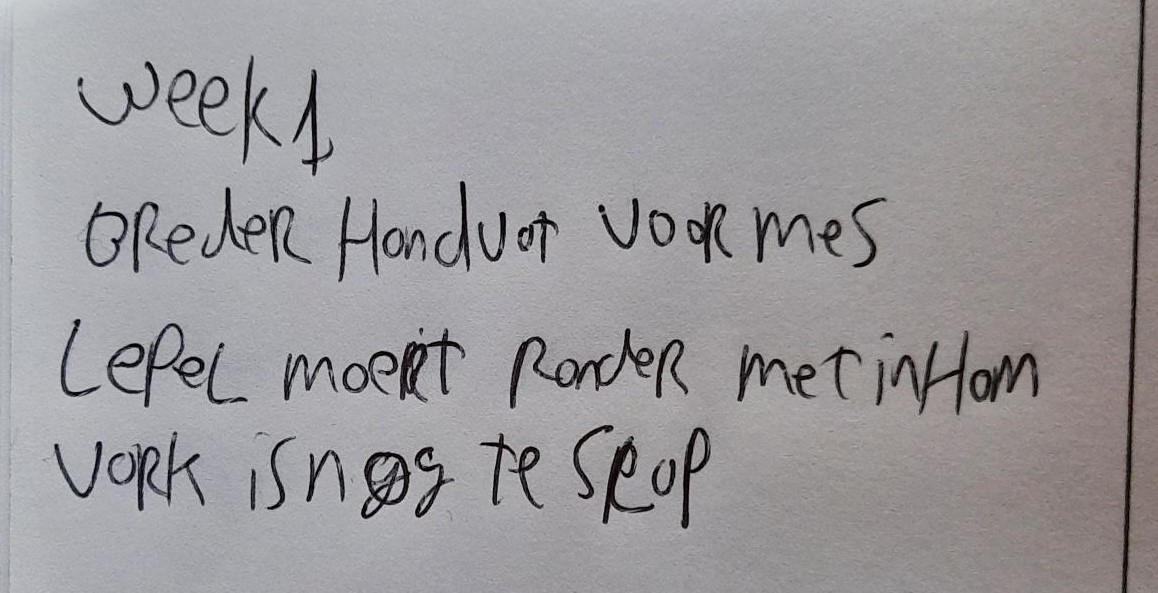 week 1
BReder Handvat voor mes
Lepel moet Ronder met inham
vork is nog te